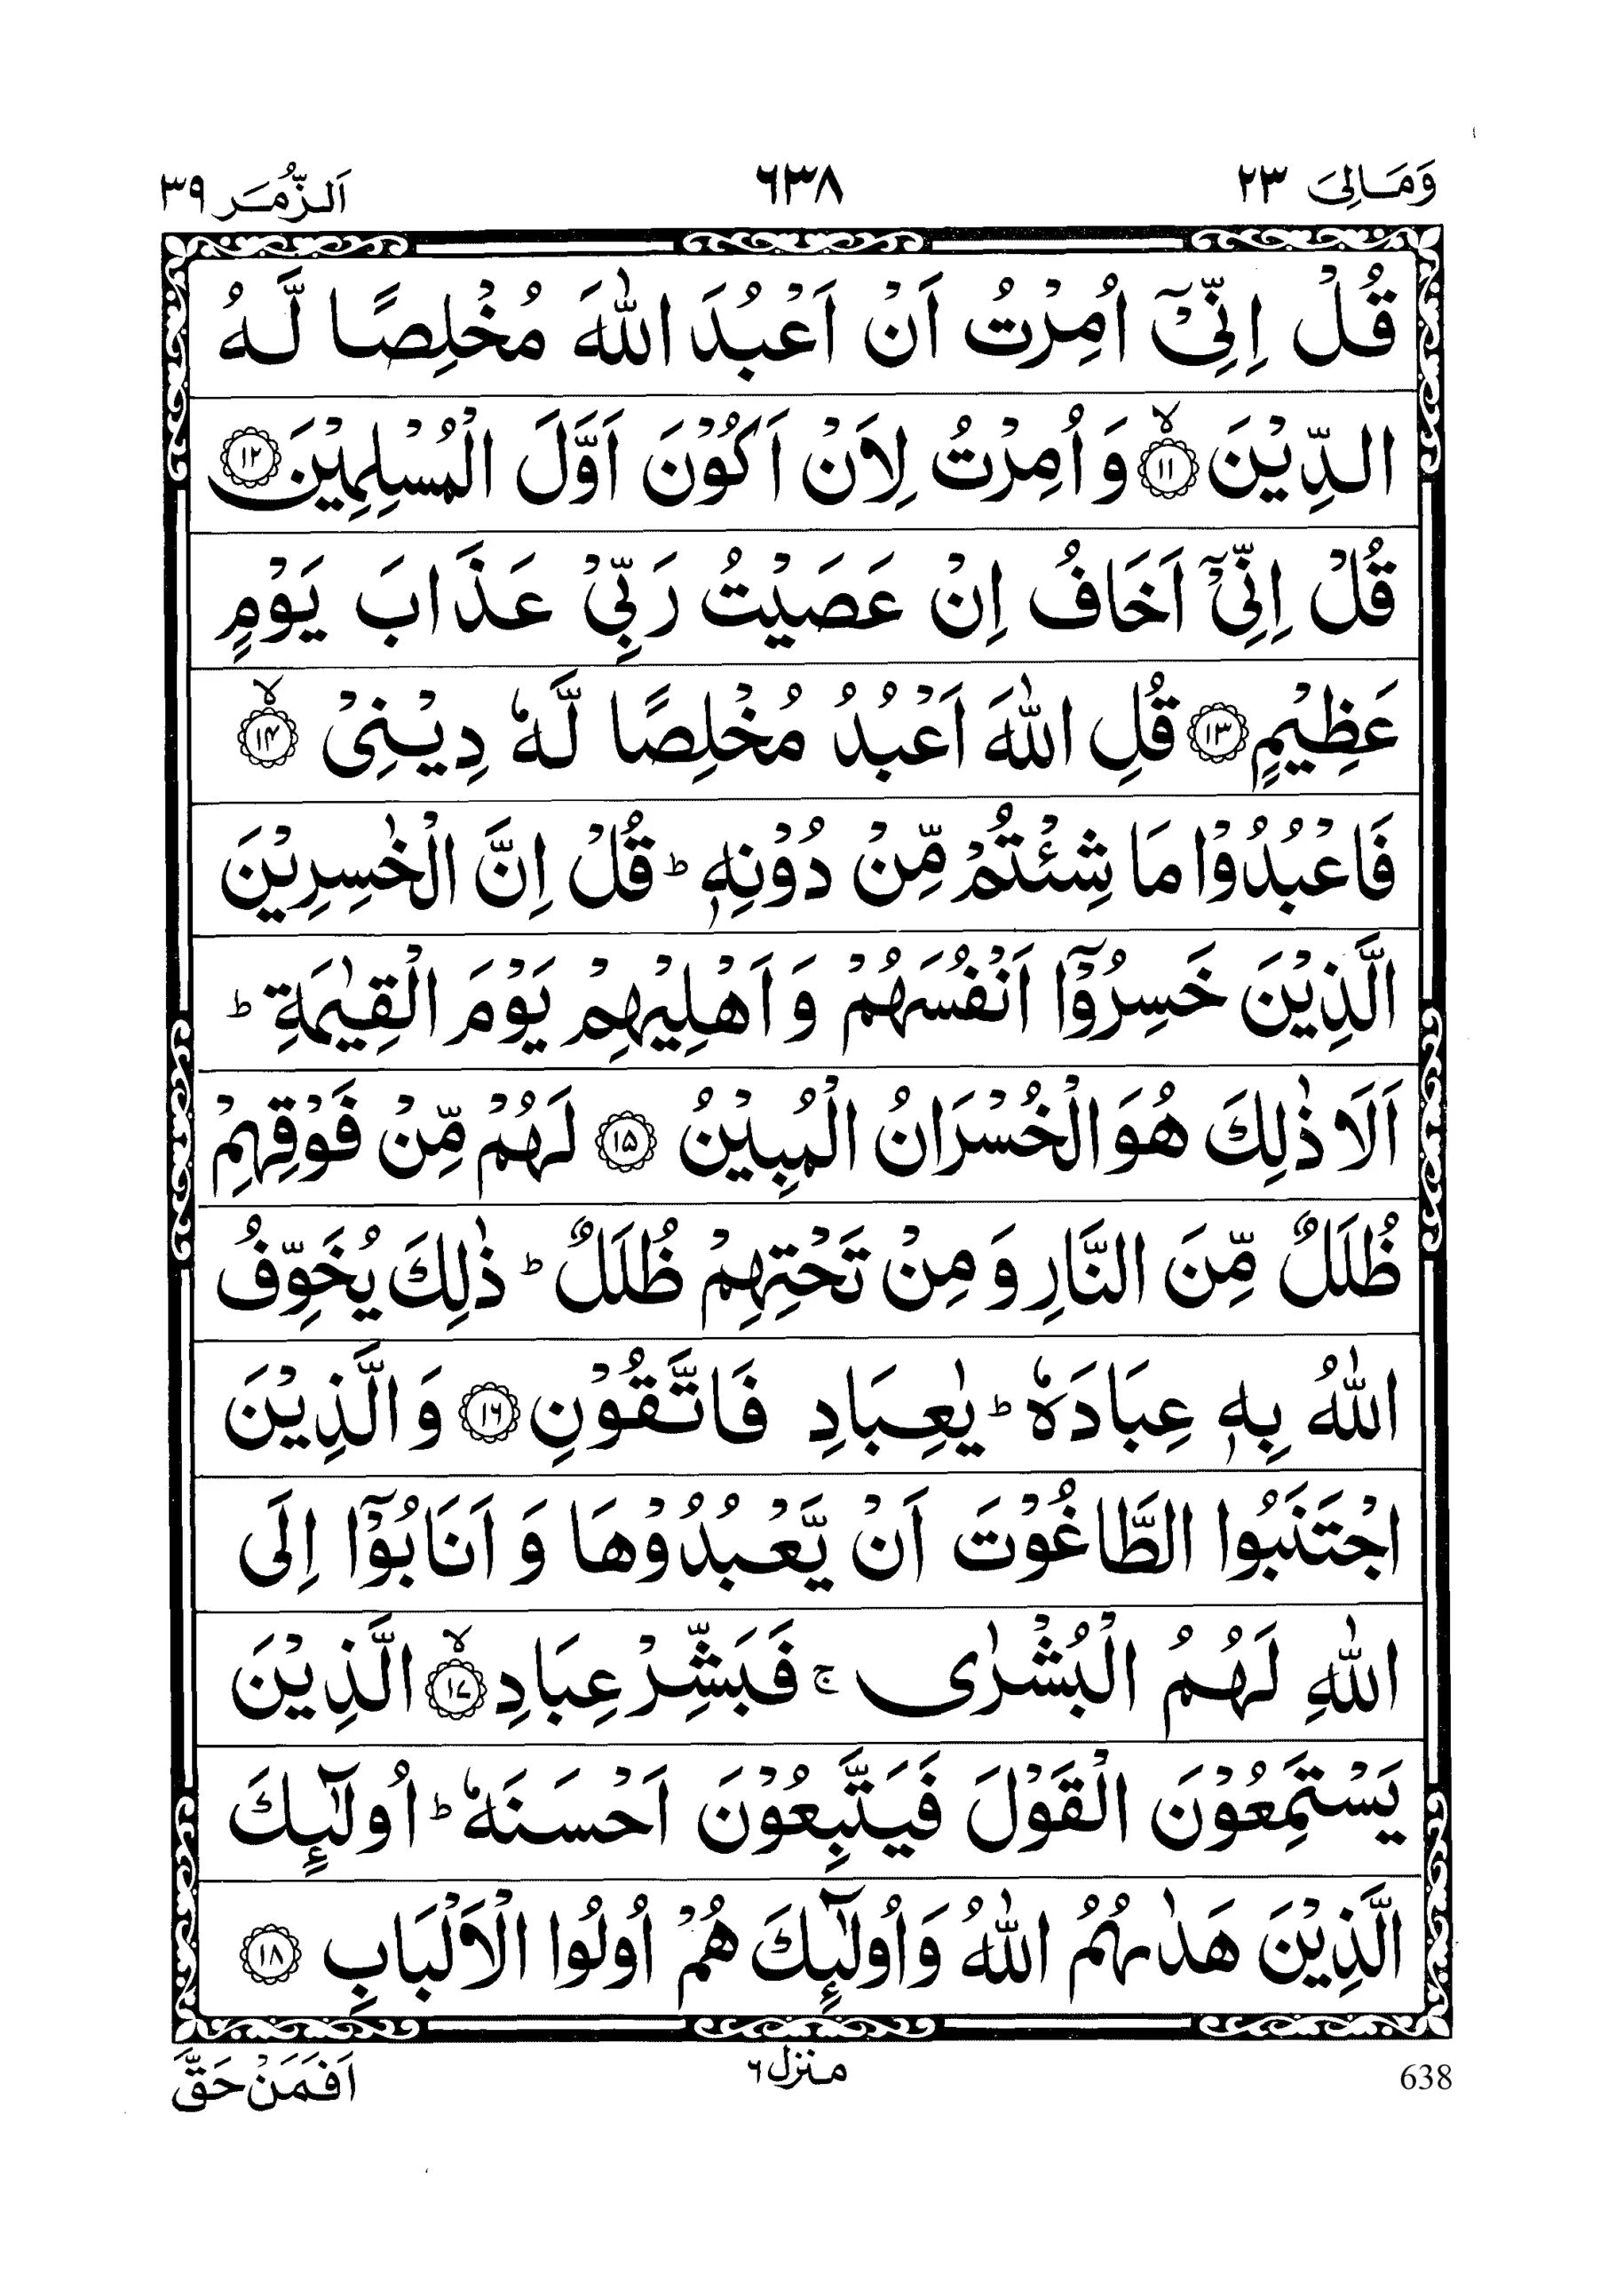 وَمَالِیَ ٢٣
٦٣٨
اَلزُّمَر ٣٩
قُلْ اِنِّیْۤ اُمِرْتُ اَنْ اَعْبُدَ اللّٰهَ مُخْلِصًا لَّهُ
الدِّیْنَ ۙ﴿۱۱﴾ وَ اُمِرْتُ لِاَنْ اَكُوْنَ اَوَّلَ الْمُسْلِمِیْنَ ﴿۱۲﴾
قُلْ اِنِّیْۤ اَخَافُ اِنْ عَصَیْتُ رَبِّیْ عَذَابَ یَوْمٍ
عَظِیْمٍ ﴿۱۳﴾ قُلِ اللّٰهَ اَعْبُدُ مُخْلِصًا لَّهٗ دِیْنِیْ ۙ﴿۱۴﴾
فَاعْبُدُوْا مَا شِئْتُمْ مِّنْ دُوْنِهٖ ؕ قُلْ اِنَّ الْخٰسِرِیْنَ
الَّذِیْنَ خَسِرُوْۤا اَنْفُسَهُمْ وَ اَهْلِیْهِمْ یَوْمَ الْقِیٰمَةِ ؕ
اَلَا ذٰلِكَ هُوَ الْخُسْرَانُ الْمُبِیْنُ ﴿۱۵﴾ لَهُمْ مِّنْ فَوْقِهِمْ
ظُلَلٌ مِّنَ النَّارِ وَ مِنْ تَحْتِهِمْ ظُلَلٌ ؕ ذٰلِكَ یُخَوِّفُ
اللّٰهُ بِهٖ عِبَادَهٗ ؕ یٰعِبَادِ فَاتَّقُوْنِ ﴿۱۶﴾ وَ الَّذِیْنَ
اجْتَنَبُوا الطَّاغُوْتَ اَنْ یَّعْبُدُوْهَا وَ اَنَابُوْۤا اِلَی
اللّٰهِ لَهُمُ الْبُشْرٰی ۚ فَبَشِّرْ عِبَادِ ۙ﴿۱۷﴾ الَّذِیْنَ
یَسْتَمِعُوْنَ الْقَوْلَ فَیَتَّبِعُوْنَ اَحْسَنَهٗ ؕ اُولٰٓىِٕكَ
الَّذِیْنَ هَدٰىهُمُ اللّٰهُ وَ اُولٰٓىِٕكَ هُمْ اُولُوا الْاَلْبَابِ ﴿۱۸﴾
638
منزل ٦
اَفَمَنْ حَقَّ